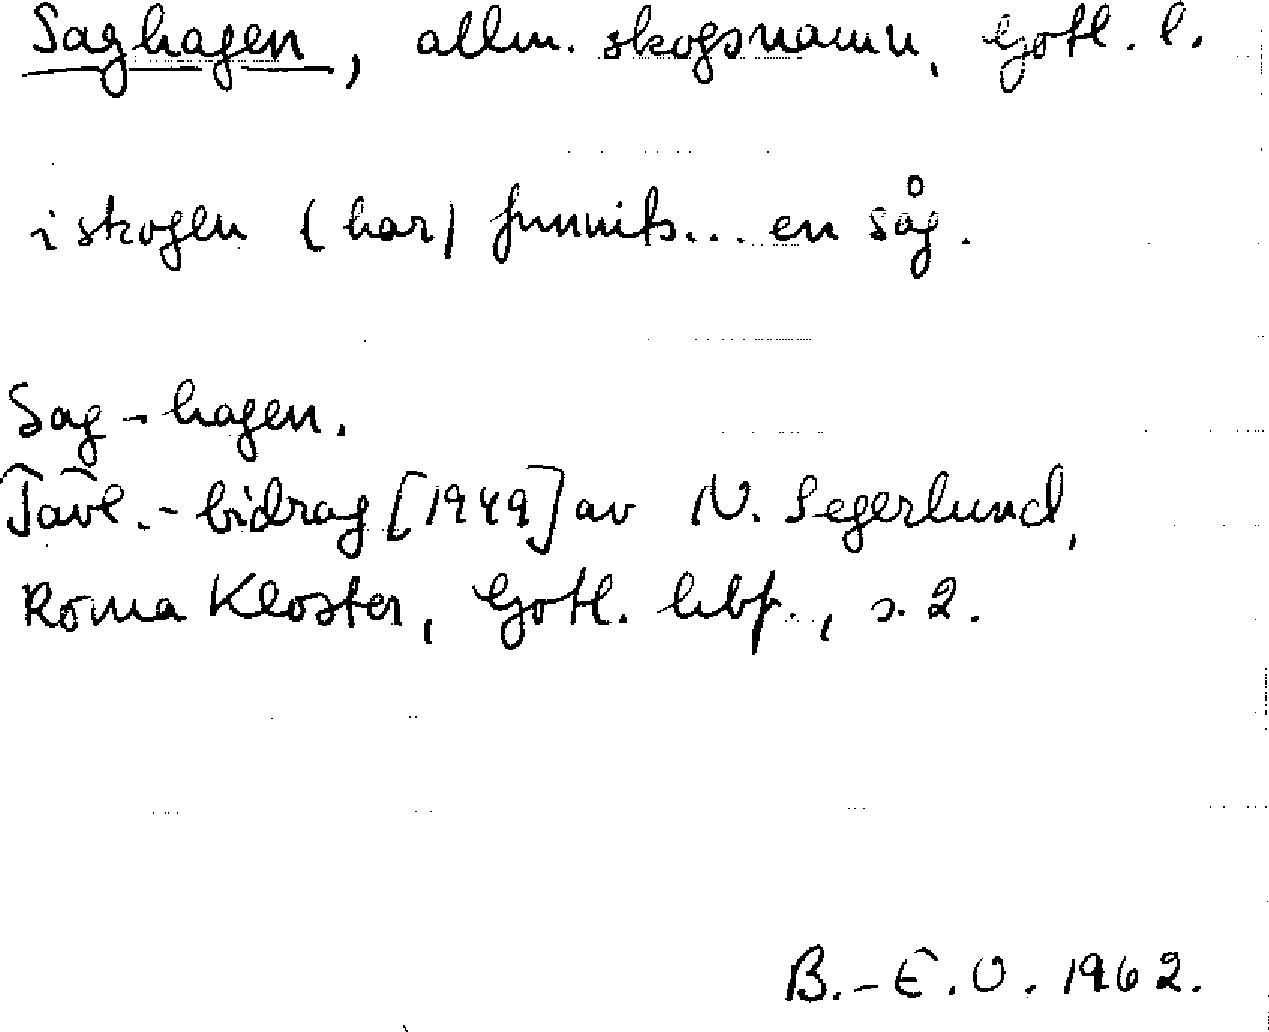 Saghagen, allm. skogsnamn, Gotl. l.
i skogen (har) funnits... en såg.
Sag-hagen.
Tävl.-bidrag [1949] av N. Segerlund,
Roma Kloster, Gotl. hbf., s. 2.
B.-E. O. 1962.